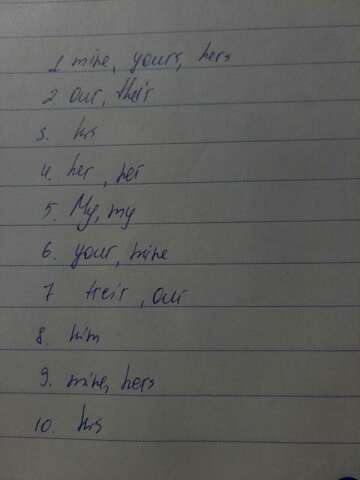 1 mine, yours, hers
2 our, their
3. his
4. her, her
5. My, my
6. your, mine
7 their, our
8. him
9. mine, hers
10. his